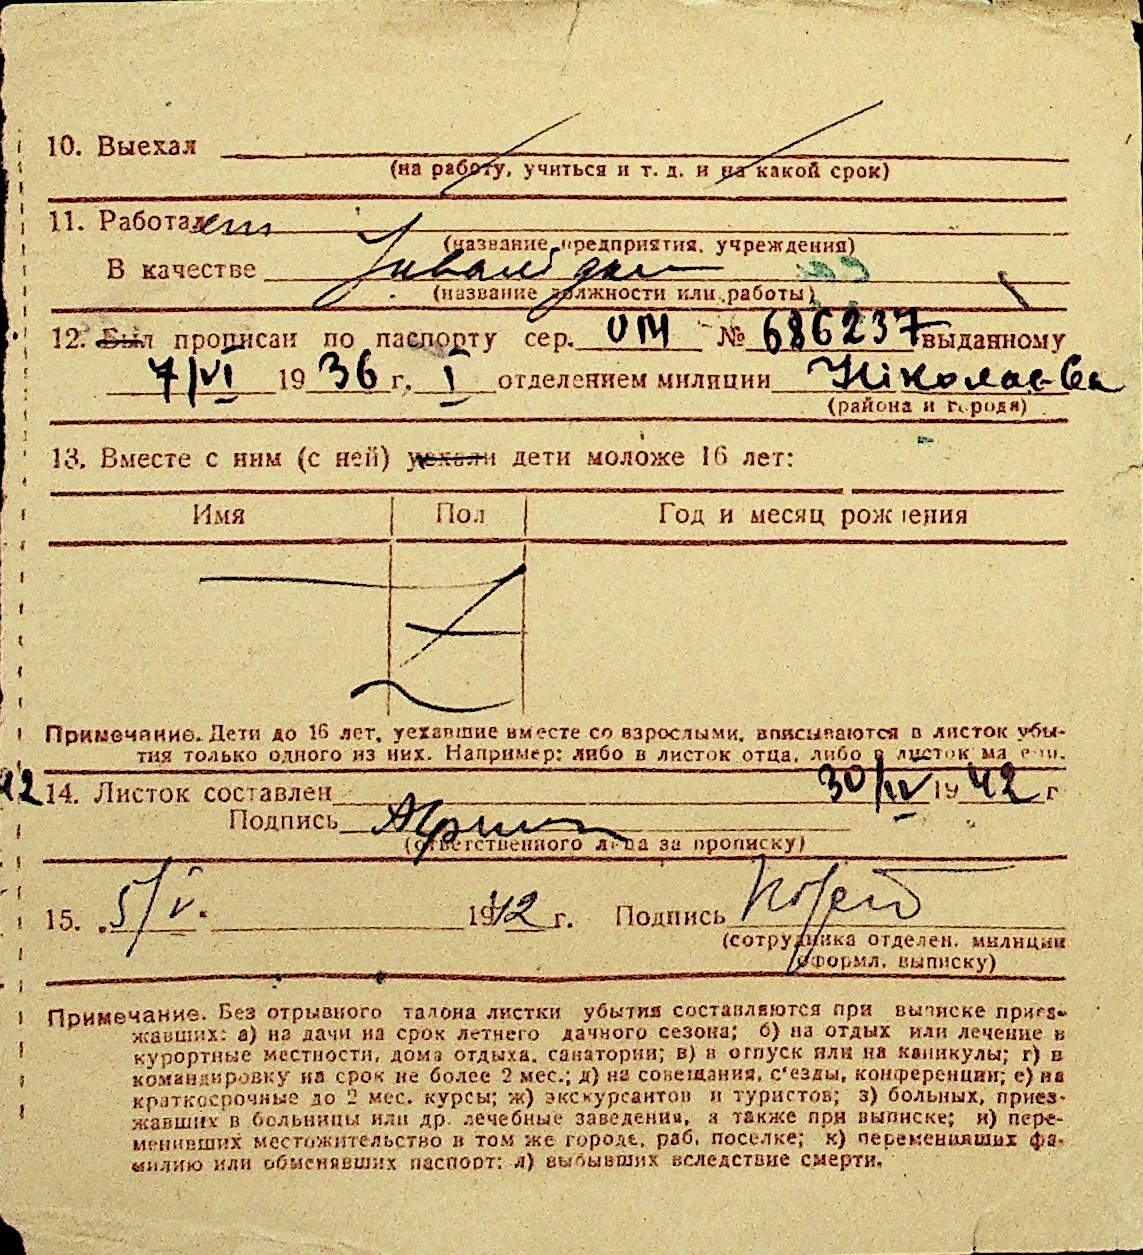 10. Выехал
(на работу, учиться и т. д. и на какой срок)
11. Работает
(название предприятия, учреждения)
В качестве
(название должности или работы)
12. Был прописан по паспорту сер. УМ № 686237 выданному
7/VI 1936 г. I отделением милиции Ніколаева
(района и города)
13. Вместе с ним (с ней) уехали дети моложе 16 лет:
Имя Пол Год и месяц рождения
Примечание. Дети до 16 лет, уехавшие вместе со взрослыми, вписываются в листок убы-
тия только одного из них. Например: либо в листок отца, либо в листок матери.
42 14. Листок составлен 30/IV 1942 г
Подпись
(ответственного лица за прописку)
15. 5/V. 1942 г. Подпись
(сотрудника отделен. милиции
оформл. выписку)
Примечание. Без отрывного талона листки убытия составляются при выписке приез-
жавших: а) на дачи на срок летнего дачного сезона; б) на отдых или лечение в
курортные местности, дома отдыха, санатории; в) в отпуск или на каникулы; г) в
командировку на срок не более 2 мес.; д) на совещания, с'езды, конференции; е) на
краткосрочные до 2 мес. курсы; ж) экскурсантов и туристов; з) больных, приез-
жавших в больницы или др. лечебные заведения, а также при выписке; и) пере-
менивших местожительство в том же городе, раб. поселке; к) переменивших фа-
милию или обменявших паспорт; л) выбывших вследствие смерти.